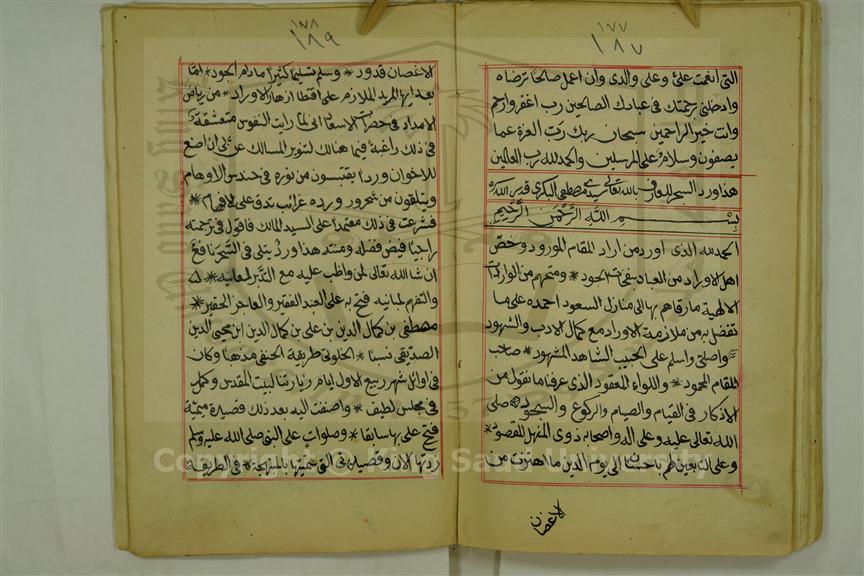 ١٧٧
١٨٧
التي انعمت علي وعلى والدي وان اعمل صالحا ترضاه
وادخلني برحمتك في عبادك الصالحين رب اغفر وارحم
وانت خير الراحمين سبحان ربك رب العزة عما
يصفون وسلام على المرسلين والحمد لله رب العالمين
هذا ورد السحر للعارف بالله تعالى سيدي مصطفى البكري قدس الله سره
بسم الله الرحمن الرحيم
الحمد لله الذي اورد من اراد المقام المورود وخص
اهل الاوراد من العباد الجود * ومنحهم من الواردات
الالهية ما رقاهم بها الى منازل السعود احمده على ما
تفضل به من ملازمة الاوراد مع كمال الادب والشهود
واصلي واسلم على الحبيب الشاهد المشهود * صاحب
المقام المحمود * واللواء المعقود الذي عرفنا ما نقول من
الاذكار في القيام والصيام والركوع والسجود * صلى
الله تعالى عليه وعلى اله واصحابه ذوي المنهل المقصود *
وعلى التابعين لهم باحسان الى يوم الدين ما هتزت من
الاغصان
١٧٨
١٨٩
الاغصان قدود * وسلم تسليما كثيرا ما دام الجود * اما
بعد ايها المريد الملازم على اقتطا ازهار الاوراد * من رياض
الامداد في حضرات الاسعاد اني لما رايت النفوس متعشقة
في ذلك راغبة فيما هنالك لتنوير المسالك عن لي ان اصنع
للاخوان وردا يقتبسون من نوره في حندس الاوهام
ويتلقون من بحرور ورده غرائب تدق على الافهام *
فشرعت في ذلك معتمدا على السيد المالك فاقول في ترجمته
راجيا فيض فضله ومننه هذا ورد يتلى في السحر نافع
ان شا الله تعالى لمن واظب عليه مع التدبر لمعانيه *
والتفهم لمبانيه فتح به على العبد الفقير والعاجز الحقير *
مصطفى بن كمال الدين بن علي بن كمال الدين ابن محيي الدين
الصديقي نسبا * الخلوتي طريقة الحنفي مذهبا وكان
في اوائل شهر ربيع الاول ايام زيارتنا لبيت المقدس وكمل
في مجلس لطيف * واضفت اليه بعد ذلك قصيدة ميمية
فتح علي بها سابقا * وصلوات على النبي صلى الله عليه وسلم
زدتها الان وقصيدتي التي سميتها بالمنبهجة * في الطريقة
Copyright © King Saud University